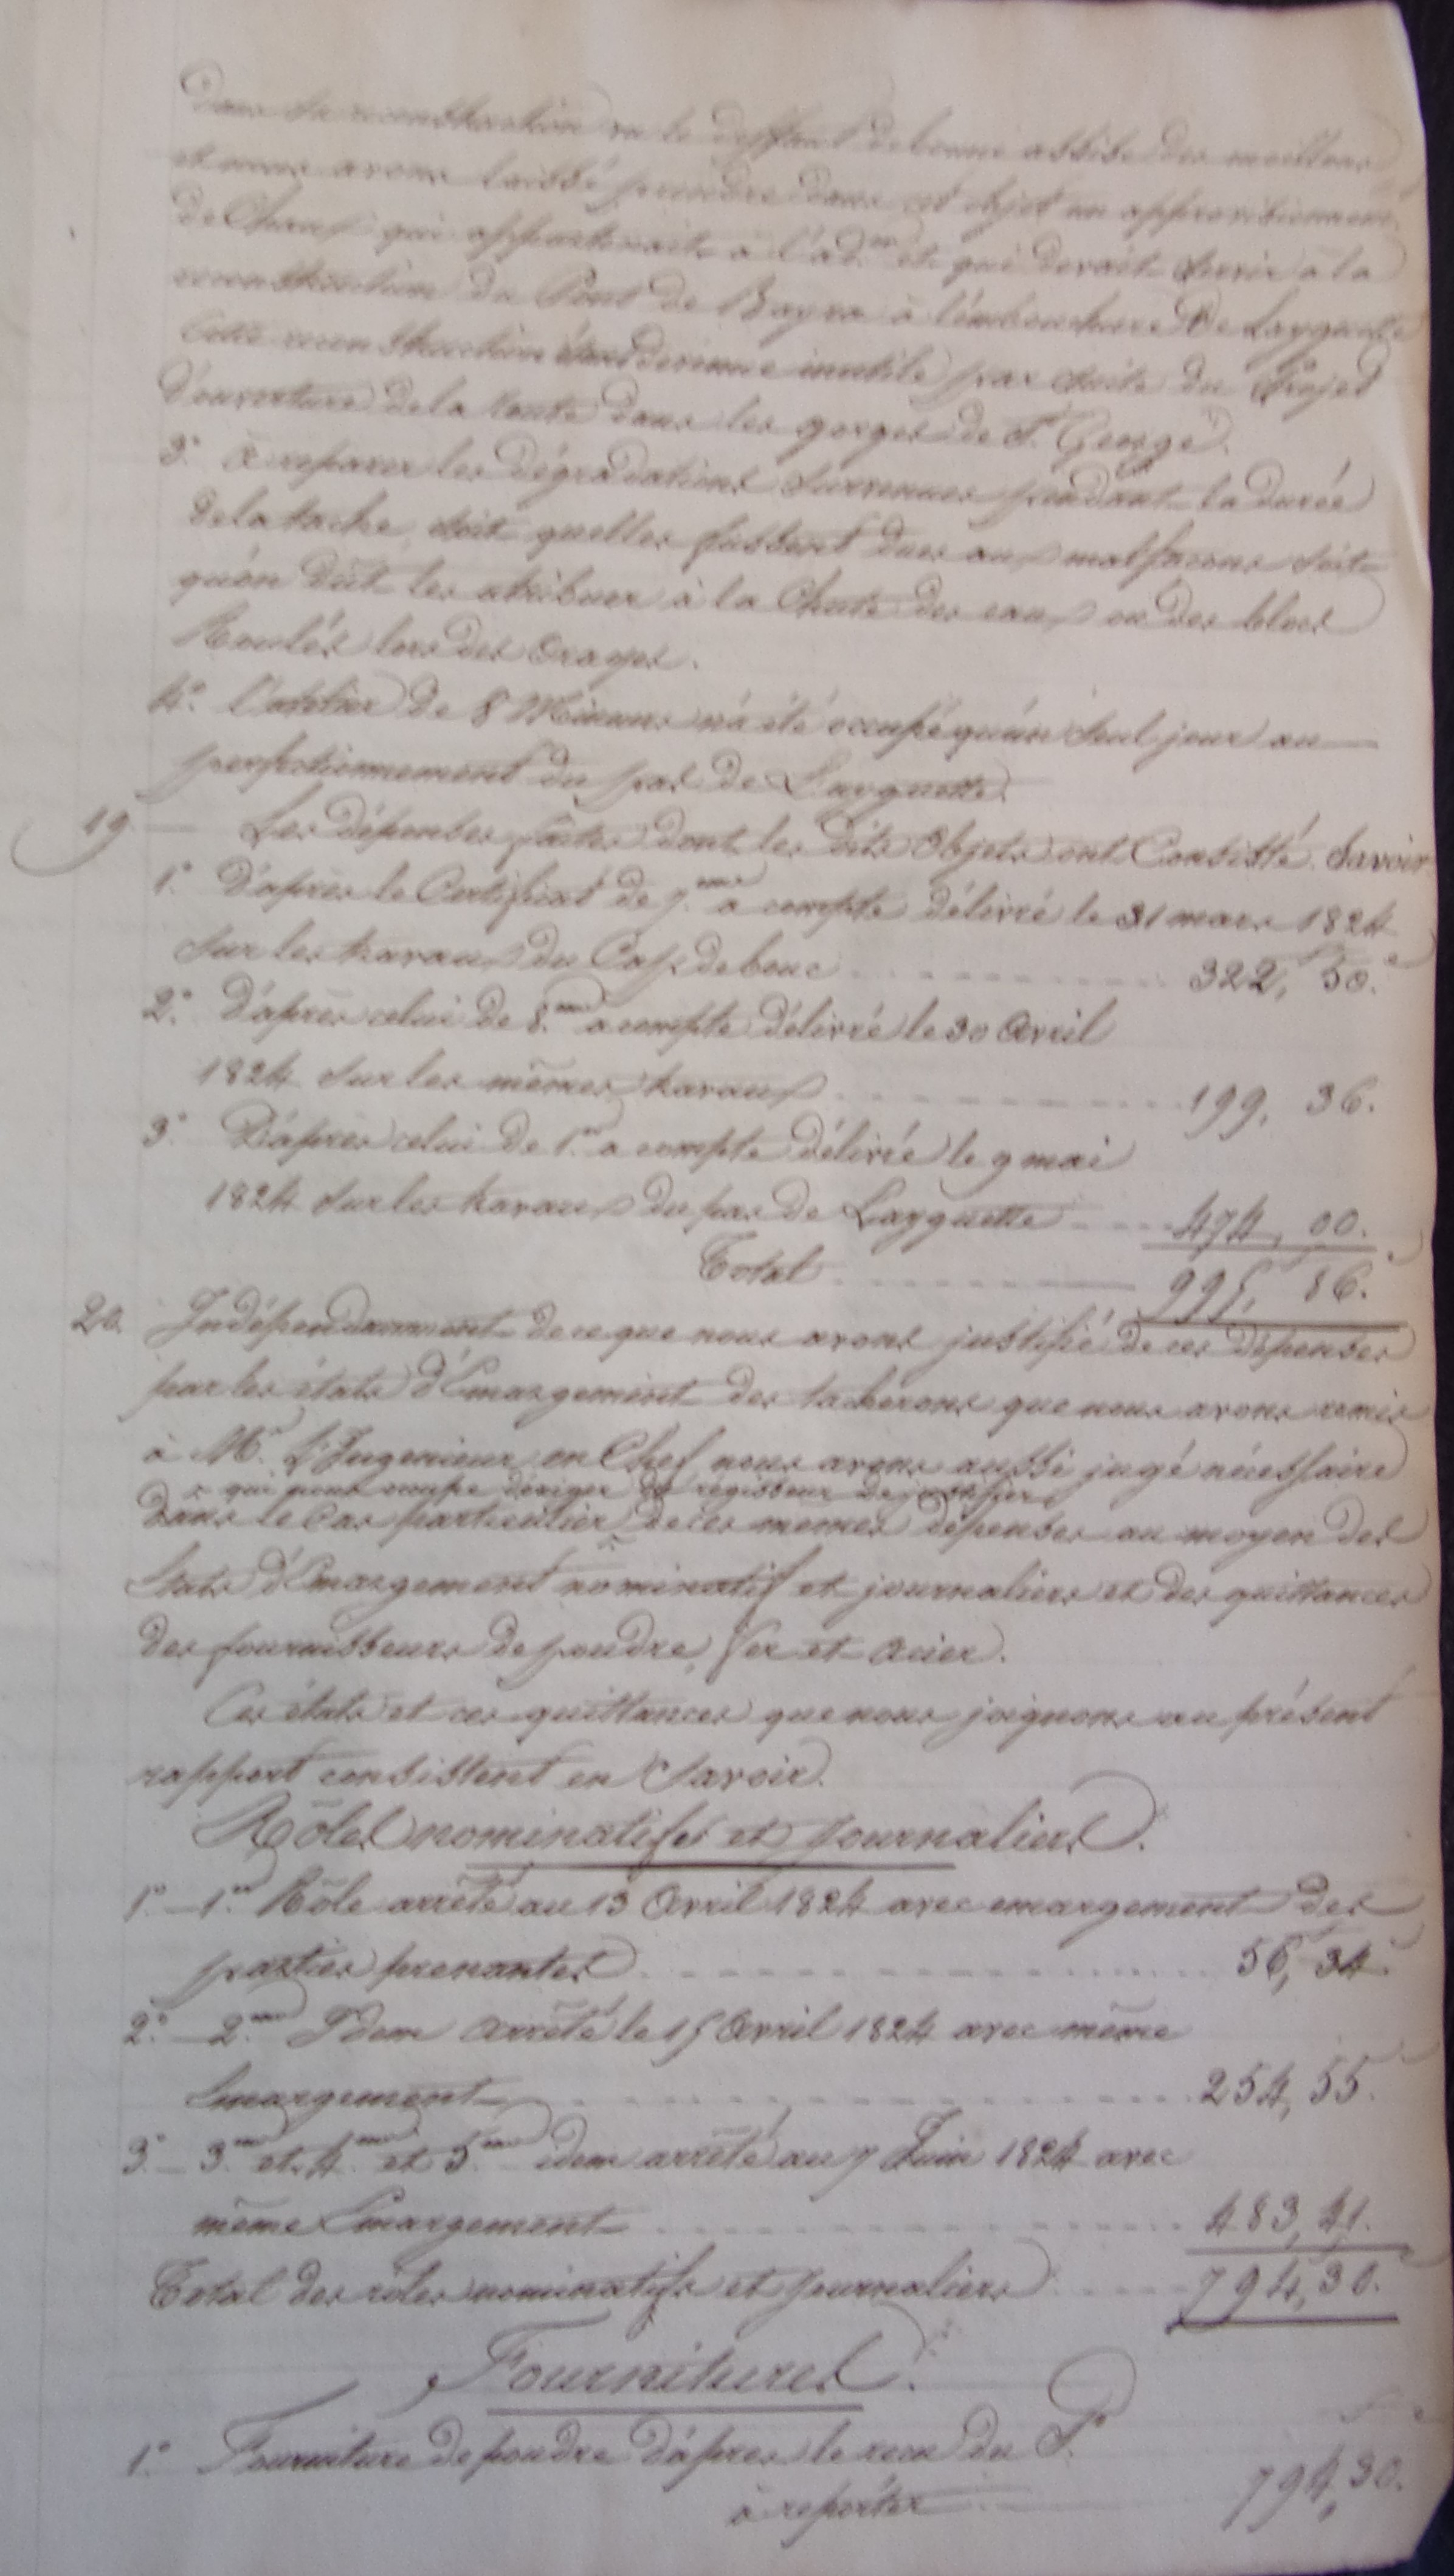 Dans sa reconstruction vu le deffaut de bonne assise des meilleurs
et nous avons laissé prendre dans cet objet un approvisionnement
de Chaux qui appartenait à l'adon et qui devait servir à la
reconstruction du Pont de Bayra à l'embouchure de Layguette
Cette reconstruction étant devenue inutile par suite du Projet
d'ouverture de la Route dans les gorges de St. George.
3° à reparer les dégradations survenues pendant la durée
de la tache, soit quelles fussent dues aux malfacons soit
qu'on dût les atribuer à la Chute des eaux ou des blocs
Roulés lors des Orages.
4° l'atelier de 8 Mineurs n'a été occupé qu'un seul jour au
perfectionnement du pas de Layguette.
19 — Les dépenses faites dont les dits Objets ont Consisté. Savoir
1° D'après le Certificat de 7.me a compte délivré le 31 mars 1824
sur les travaux du Cap de bouc 322, 50.
2° D'après celui de 8.me a compte délivré le 30 Avril
1824 sur les mêmes travaux 199, 36.
3° D'après celui de 1.er a compte délivré le 9 mai
1824 sur les travaux du pas de Layguette 474, 00.
Total 995, 86.
20. Indépendamment de ce que nous avons justifié de ces dépenses
par les états d'Emargement des tacherons que nous avons remis
à Mr. L'Ingenieur en Chef nous avons aussi jugé nécessaire
qui nous occupe d'exiger du régisseur de justifier
Dans le Cas particulier de ces memes dépenses au moyen des
Etats d'Emargement nominatif et journaliers et des quittances
des fournisseurs de poudre, fer et acier.
Ces états et ces quittances que nous joignons au présent
rapport consistent en Savoir.
Rôles nominatifs et Journaliers.
1° — 1.er Rôle arrêté au 13 Avril 1824 avec emargement des
parties prenantes 56, 34.
2° — 2.me Idem arrêté le 15 Avril 1824 avec même
Emargement 254, 55.
3° — 3.me et 4.me et 5.me idem arrêté au 7 Juin 1824 avec
même Emargement 483, 41.
Total des rôles nominatifs et journaliers 794, 30.
Fournitures.
1° Fourniture de poudre d'après le recu du S.r
à reporter 794, 30.